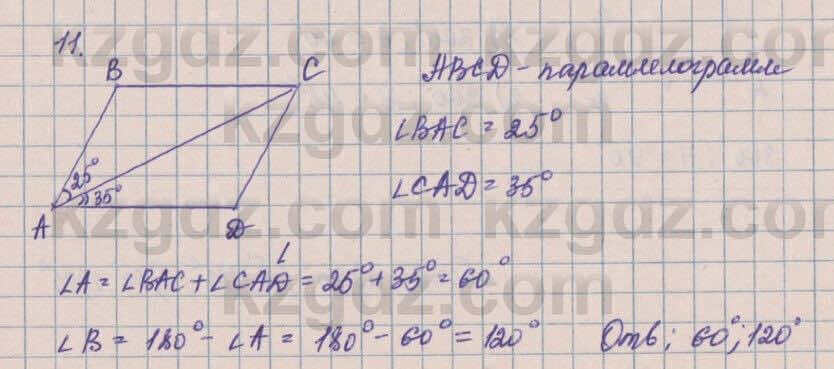 11.
B C
ABCD - параллелограмм
∠BAC = 25°
25°
∠CAD = 35°
35°
A D
∠A = ∠BAC + ∠CAD = 25° + 35° = 60°
∠B = 180° - ∠A = 180° - 60° = 120° Отв; 60°; 120°
kzgdz.com kzgdz.com
kzgdz.com
kzgdz.com kzgdz.com
kzgdz.com